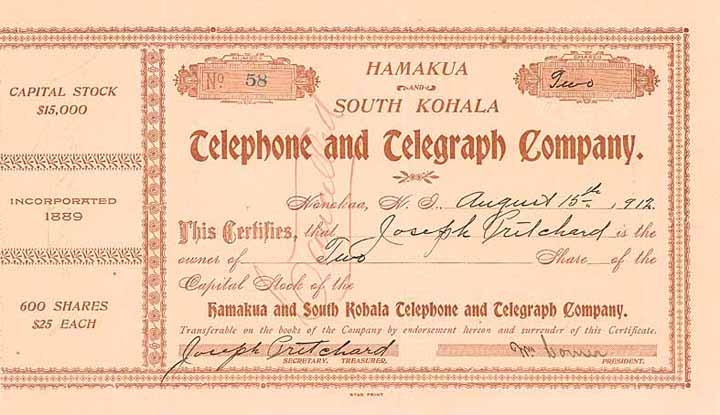 CAPITAL STOCK
$15,000
INCORPORATED
1889
600 SHARES
$25 EACH
NUMBER
No. 58
SHARES
Two
HAMAKUA
AND
SOUTH KOHALA
Telephone and Telegraph Company.
Honokaa, H. I., August 15th, 1912.
This Certifies, that Joseph Pritchard is the
owner of Two Share of the
Capital Stock of the
Hamakua and South Kohala Telephone and Telegraph Company.
Transferable on the books of the Company by endorsement hereon and surrender of this Certificate.
Joseph Pritchard
SECRETARY. TREASURER.
Wm
PRESIDENT.
Cancelled
STAR PRINT